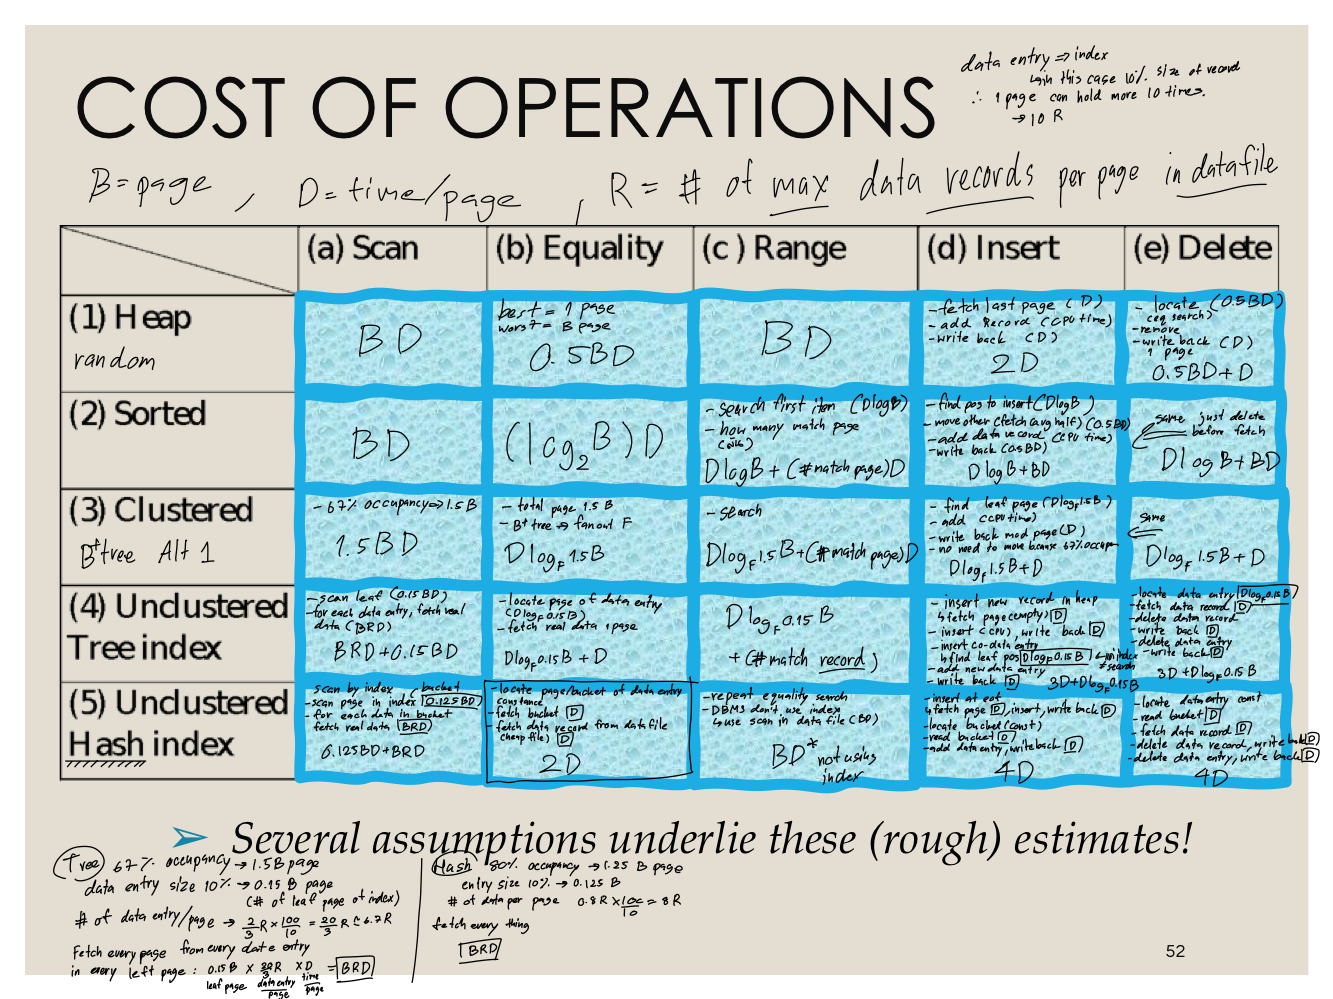 COST OF OPERATIONS
data entry ⇒ index
↳ in this case 10% size of record
∴ 1 page can hold more 10 times.
→ 10 R
B = page , D = time/page , R = # of max data records per page in datafile
(a) Scan (b) Equality (c ) Range (d) Insert (e) Delete
(1) Heap
random
BD
best = 1 page
worst = B page
0.5BD
BD
- fetch last page (D)
- add Record (CPU time)
- write back (D)
2D
- locate (0.5BD)
(eq search)
- remove
- write back (D)
1 page
0.5BD + D
(2) Sorted
BD
(log₂B)D
- search first item (DlogB)
- how many match page
DlogB + (#match page)D
- find pos to insert (DlogB)
- move other (fetch (avg half) (0.5BD)
- add data record (CPU time)
- write back (0.5BD)
DlogB + BD
same just delete
before fetch
DlogB + BD
(3) Clustered
B⁺tree Alt 1
- 67% occupancy ⇒ 1.5B
1.5BD
- total page 1.5 B
- B⁺tree → fanout F
Dlog_F 1.5B
- search
Dlog_F 1.5B + (#match page)D
- find leaf page (Dlog_F 1.5B)
- add (CPU time)
- write back mod page (D)
- no need to move because 67% occupan
Dlog_F 1.5B + D
same
Dlog_F 1.5B + D
(4) Unclustered
Tree index
- scan leaf (0.15BD)
- for each data entry, fetch real
data (BRD)
BRD + 0.15BD
- locate page of data entry
(Dlog_F 0.15B)
- fetch real data 1 page
Dlog_F 0.15B + D
Dlog_F 0.15B
+ (#match record)
- insert new record in heap
↳ fetch page (empty) D
- insert (CPU), write back D
- insert co-data entry
↳ find leaf pos Dlog_F 0.15B
- add new data entry
- write back D
3D + Dlog_F 0.15B
- locate data entry Dlog_F 0.15B
- fetch data record D
- delete data record
- write back D
- delete data entry
- write back D
3D + Dlog_F 0.15B
(5) Unclustered
Hash index
- scan by index (bucket
- scan page in index 0.125BD
- for each data in bucket
fetch real data BRD
0.125BD + BRD
- locate page/bucket of data entry
constance
- fetch bucket D
- fetch data record from data file
(heap file) D
2D
- repeat equality search
- DBMS don't use index
↳ use scan in data file (BD)
BD* not using
index
- insert at eof
↳ fetch page D, insert, write back D
- locate bucket (const)
- read bucket D
- add data entry, write back D
4D
- locate data entry const
- read bucket D
- fetch data record D
- delete data record, write back D
- delete data entry, write back D
4D
➢ Several assumptions underlie these (rough) estimates!
Tree 67% occupancy → 1.5B page
data entry size 10% → 0.15 B page
(# of leaf page of index)
# of data entry/page → 2/3 R × 100/10 = 20/3 R ≈ 6.7R
Fetch every page from every date entry
in every left page : 0.15B × 20/3 R × D = BRD
leaf page data entry/page time/page
Hash 80% occupancy → 1.25 B page
entry size 10% → 0.125 B
# of data per page 0.8R × 100/10 = 8R
fetch every thing
BRD
52